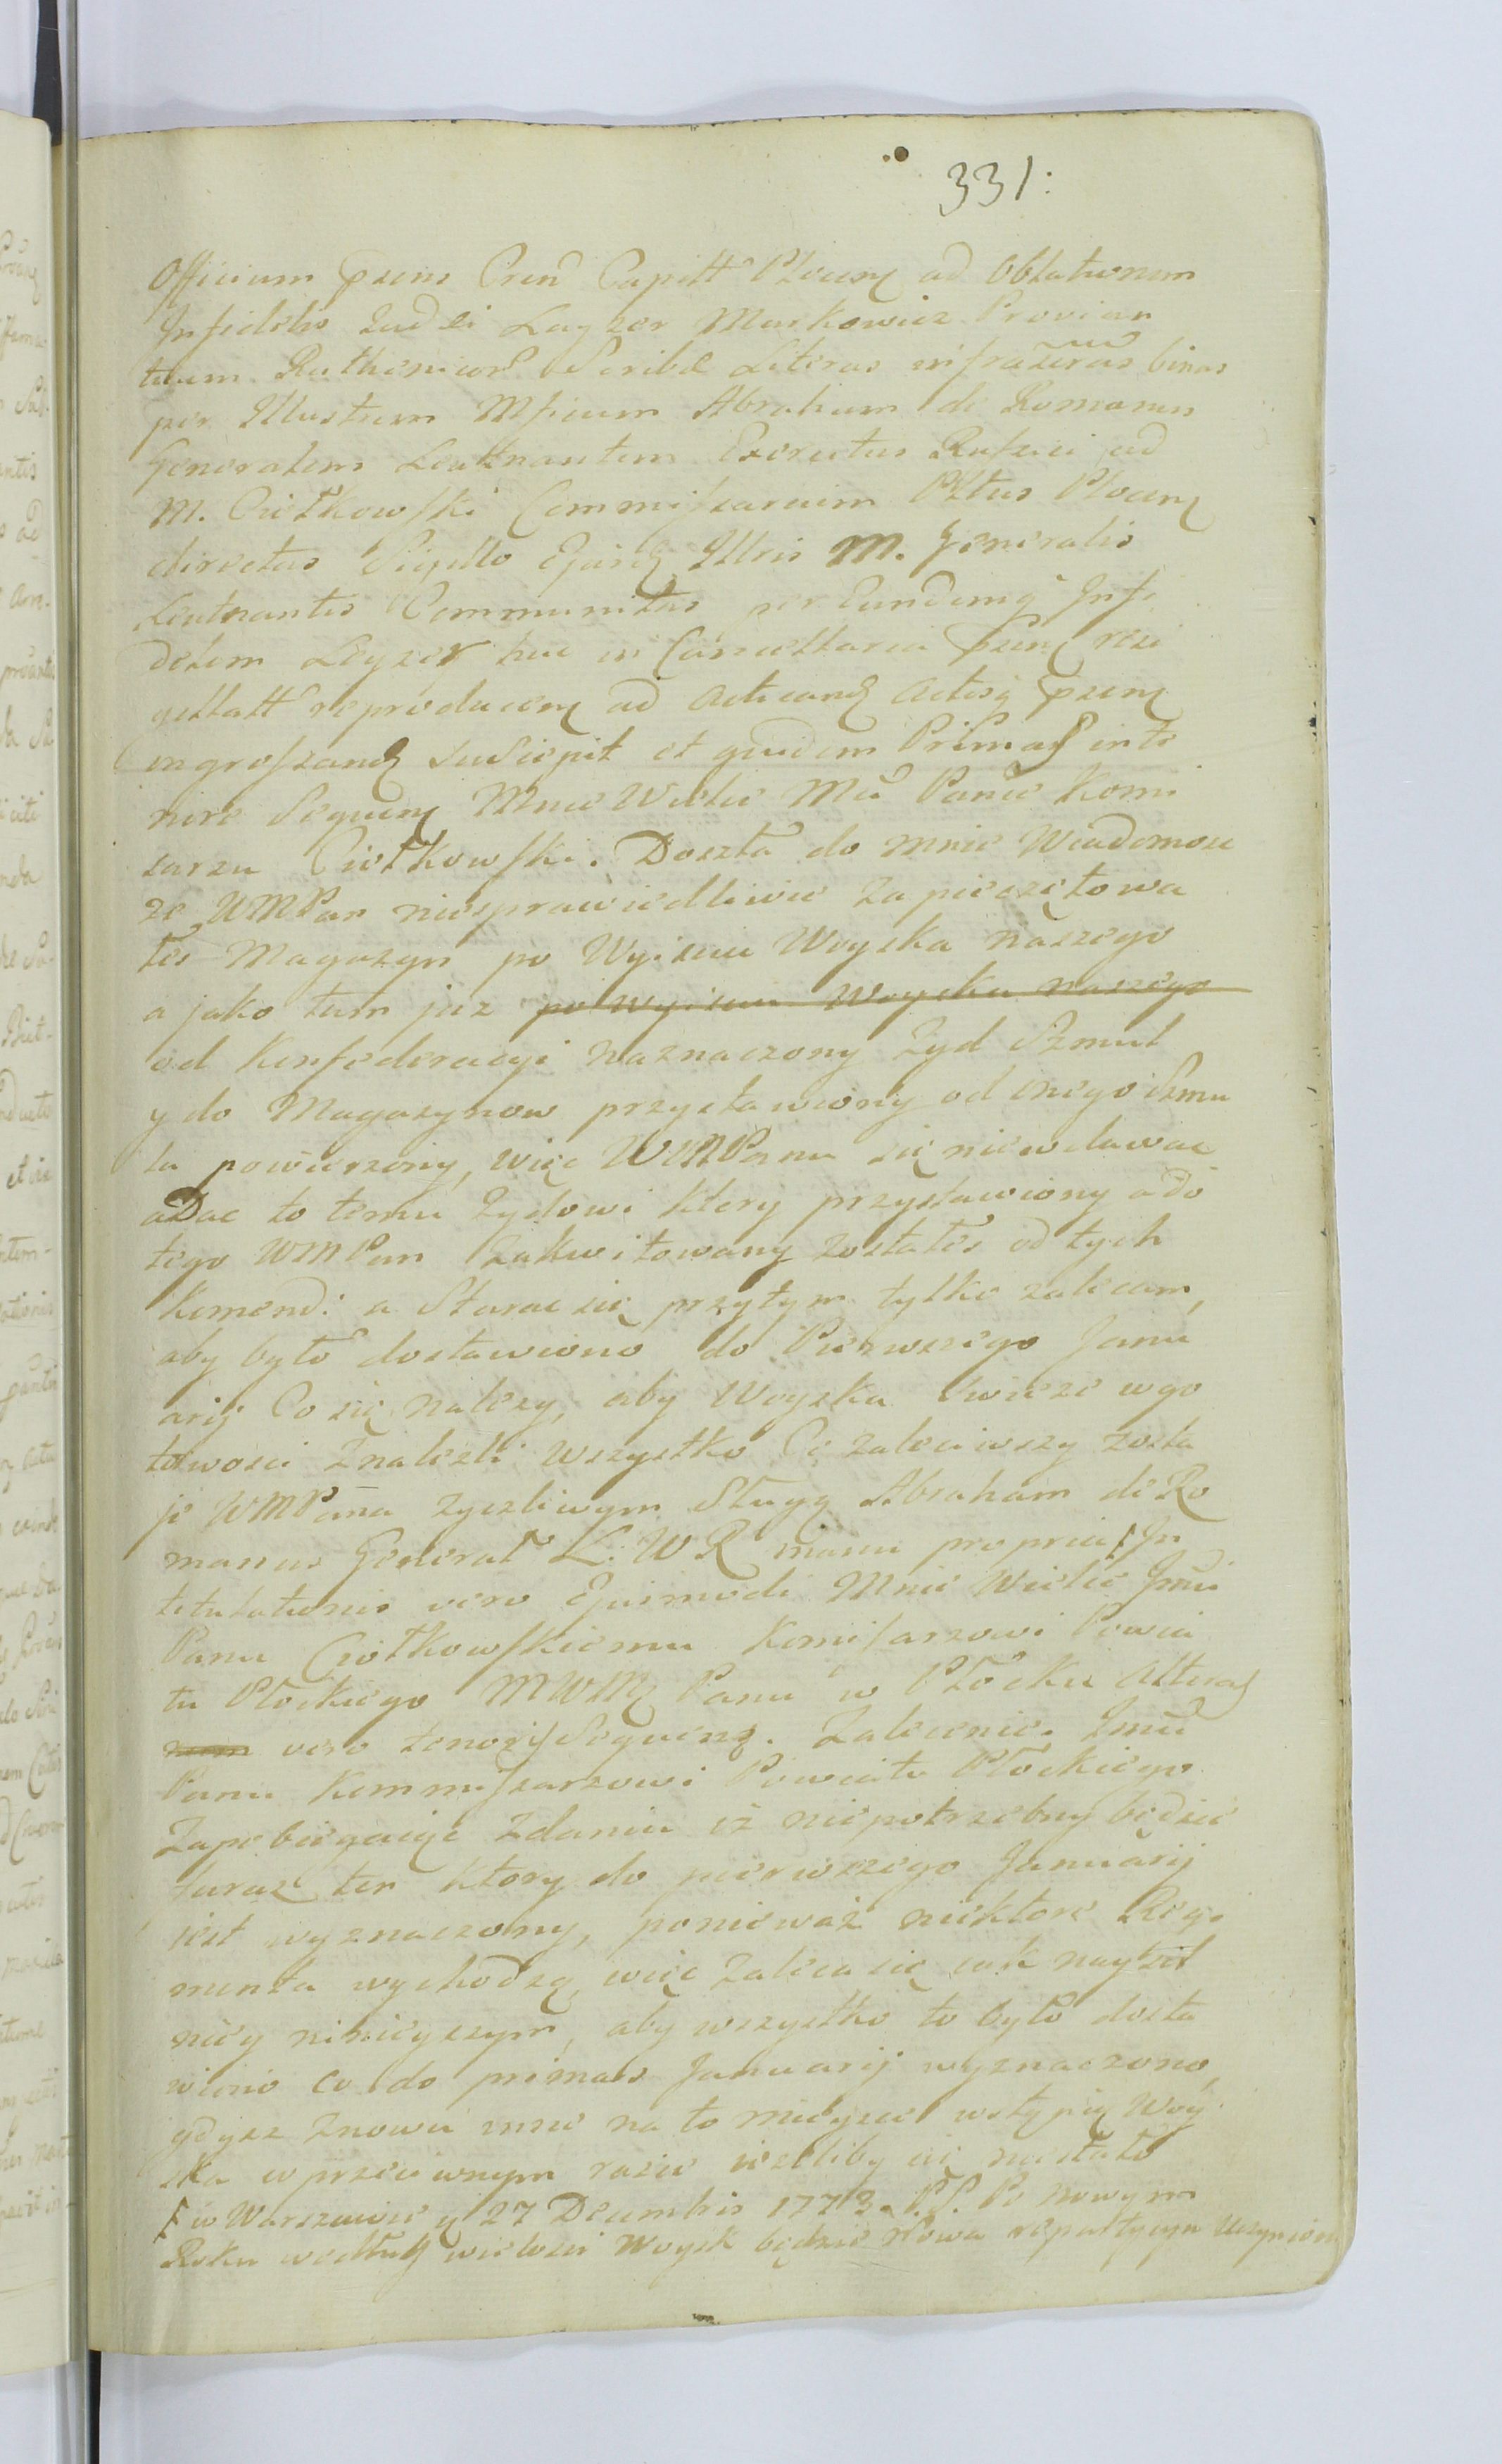 331:
Officium Cren Capitt Plocen ad Oblationem
Infidelis Judei Layzer Markowicz Provian
tuum Ruthenicor Scriba Literas infrascras binas
per Illustrem Mficum Abraham de Romanus
Generalem Leutnantem Exercitus Rutzci ad
M. Ciotkowski Commiszarium Pltus Plocen
directas Sigillo Ejusd Illris M. Generalis
Leutnantis Communitas per Eundemq Infi
delem Leyzer huc in Cancellaria
reproducen ad Acticand Actisq
ingroszand Suscepit et quidem Primas in te
nore Sequen Mnie Wielce Mci Panie Komi
sarzu Ciotkowski. Doszła do mnie Wiadomosc
ze WMPan niesprawiedliwie zapieczętowa
łes Magazyn po Wyisciu Woyska naszego
a jako tam juz po wyisciu Woyska naszego
od Konfederacyi naznaczony Zyd Szmul
y do Magazynow przystawiony od onego Szmu
la powierzony, więc WMPanu się niewdawac
a Dac to temu Zydowi ktory przystawiony a do
tego WMPan Zakwitowany zostałes od tych
Komend: a Starac się przytym tylko zalecam,
aby było dostawiono do Pierwszego Janu
arij Co się nalezy, aby Woyska Swieze w go
towosci Znalezli wszystko Co zaleciwszy zosta
je WMPana zyczliwym Sługą Abraham de Ro
manus Generał L. W R manu propria In
titulationis vero Ejusmodi Mnie Wielce Jmci
Panu Ciotkowskiemu Komisarzowi Powia
tu Płockiego MWM Panu w Płocku Alteras
vero tenoris Sequens. Zalecenie Jmci
Panu Kommiszarzowi Powiatu Płockiego
Zapobiegaiąc Zdaniu iż niepotrzebny będzie
taraz ten ktory do pierwszego Januarij
jest wyznaczony, ponieważ niektore Regi
menta wychodzą, więc Zaleca się iak nayzil
niey ninieyszym, aby wszystko to było dosta
wiono co do primas Januarij wyznaczono,
gdysz Znowu insze na to mieysce wstąpią Woy
ska w przeciwnym razie iezeliby się nie stało
w Warszawie d 27 Decembris 1773. P.S. Po nowym
Roku według wielosci Woysk będzie Nowa repartycya Uczyniona